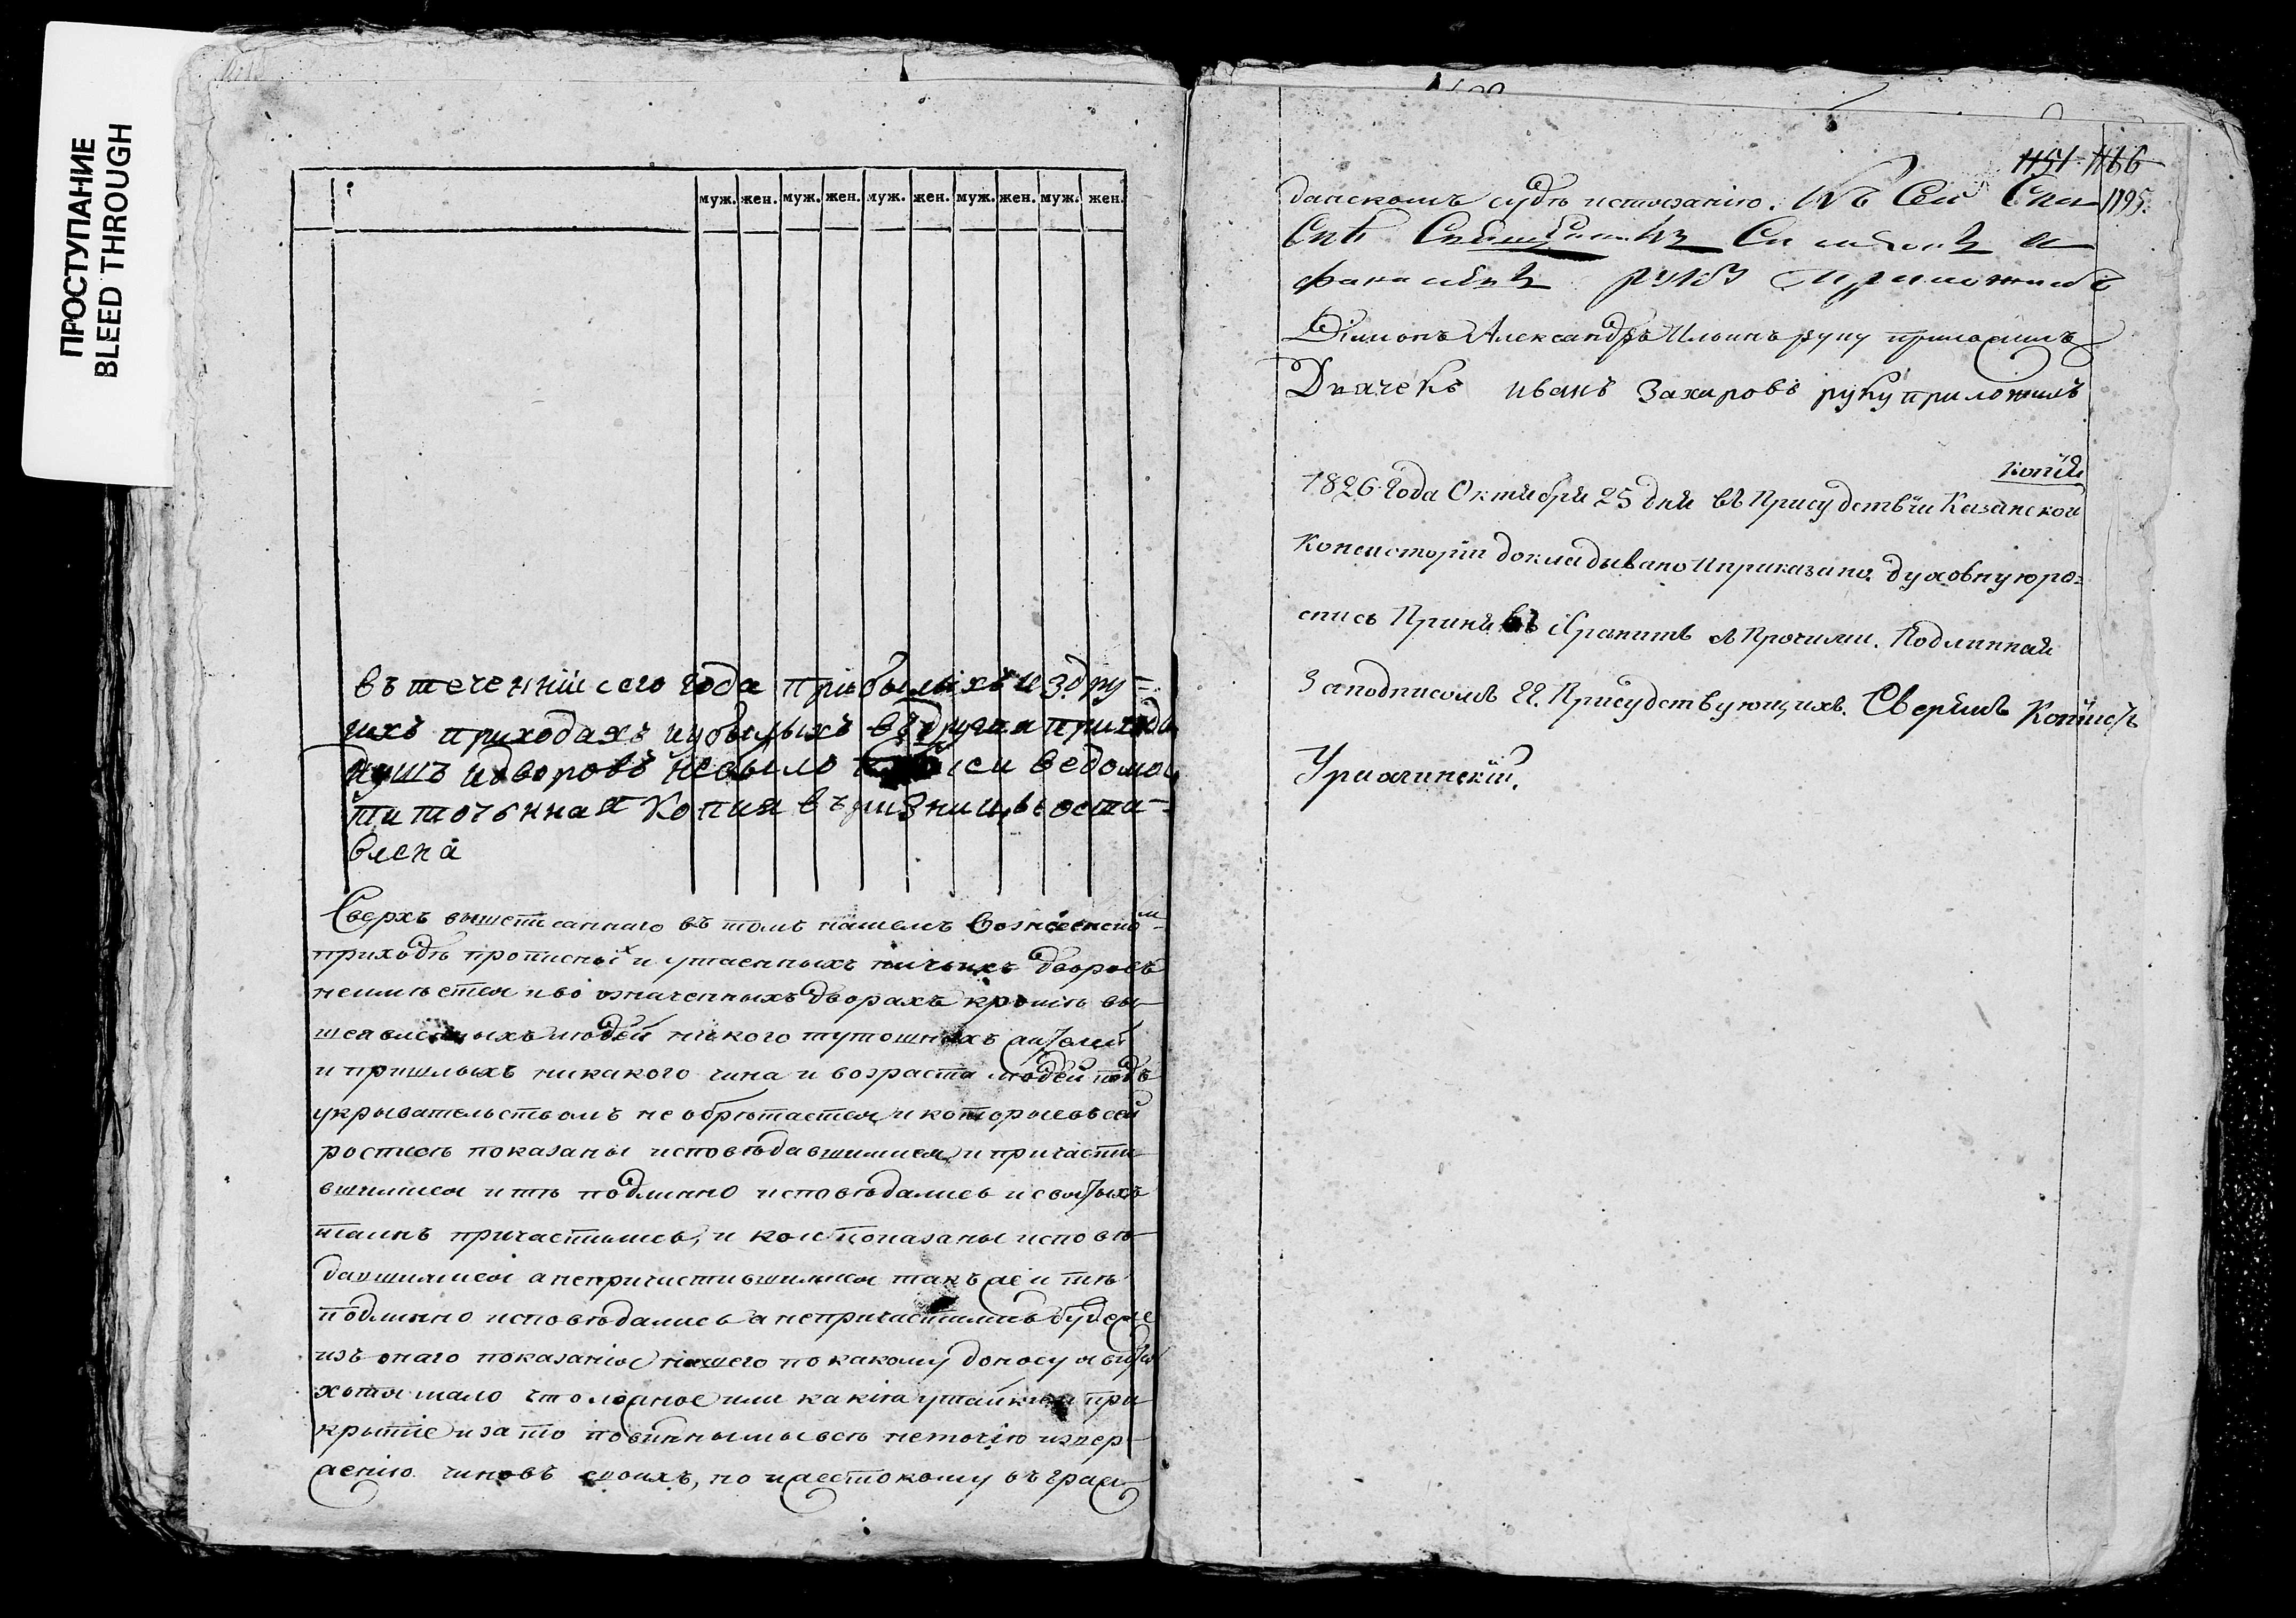 ПРОСТУПАНИЕ
BLEED THROUGH
муж. жен. муж. жен. муж. жен. муж. жен. муж. жен.
въ теченіи сего года прибылыхъ изъ дру=
гихъ приходахъ иубылыхъ въ другия приходы
душъ идворовъ небыло сей ведомос
ти точьнная Копия въ ризницы оста=
влена
Сверхъ вышеписаннаго въ томъ нашемъ Вознесенско м
приходѣ прописных и утаенныхъ ничьихъ дворовъ
неимѣется иво означенныхъ дворахъ кромѣ вы
шеявленныхъ людей никого тутошнихъ жителей
и пришлыхъ никакого чина и возраста людей подъ
укрывательствомъ не обрѣтается и которые въ сей
росписѣ показаны исповѣдавшимися и причасти
вшимися и тѣ подлинно исповѣдались и святыхъ
таинъ причастились, и кои показаны исповѣ
давшимися а непричастившимися такъ же и тѣ
подлинно исповѣдались а непричастились буде же
изъ онаго показанія нашего по какому доносу явится
хотя мало что ложное или какія утайки и при
крытіе и за то повинны мы всѣ неточію извер
женію чиновъ своихъ, но и жестокому въ граж
1151 1166
1195.
данскомъ судѣ истязанію. Къ Сей
руку приложилъ
Діаконъ Александръ Ильинъ руку приложилъ
Дьячекъ иванъ Захаровъ руку приложилъ
Копія
1826 Года Октября 25 дня въ Присудствіи Казанской
Консисторіи докладывано Иприказано. духовную ро=
спись Принявъ Хранить съ Прочими. Подлинная
За подписомъ Гг. Присудствующихъ. Сверилъ Копиистъ